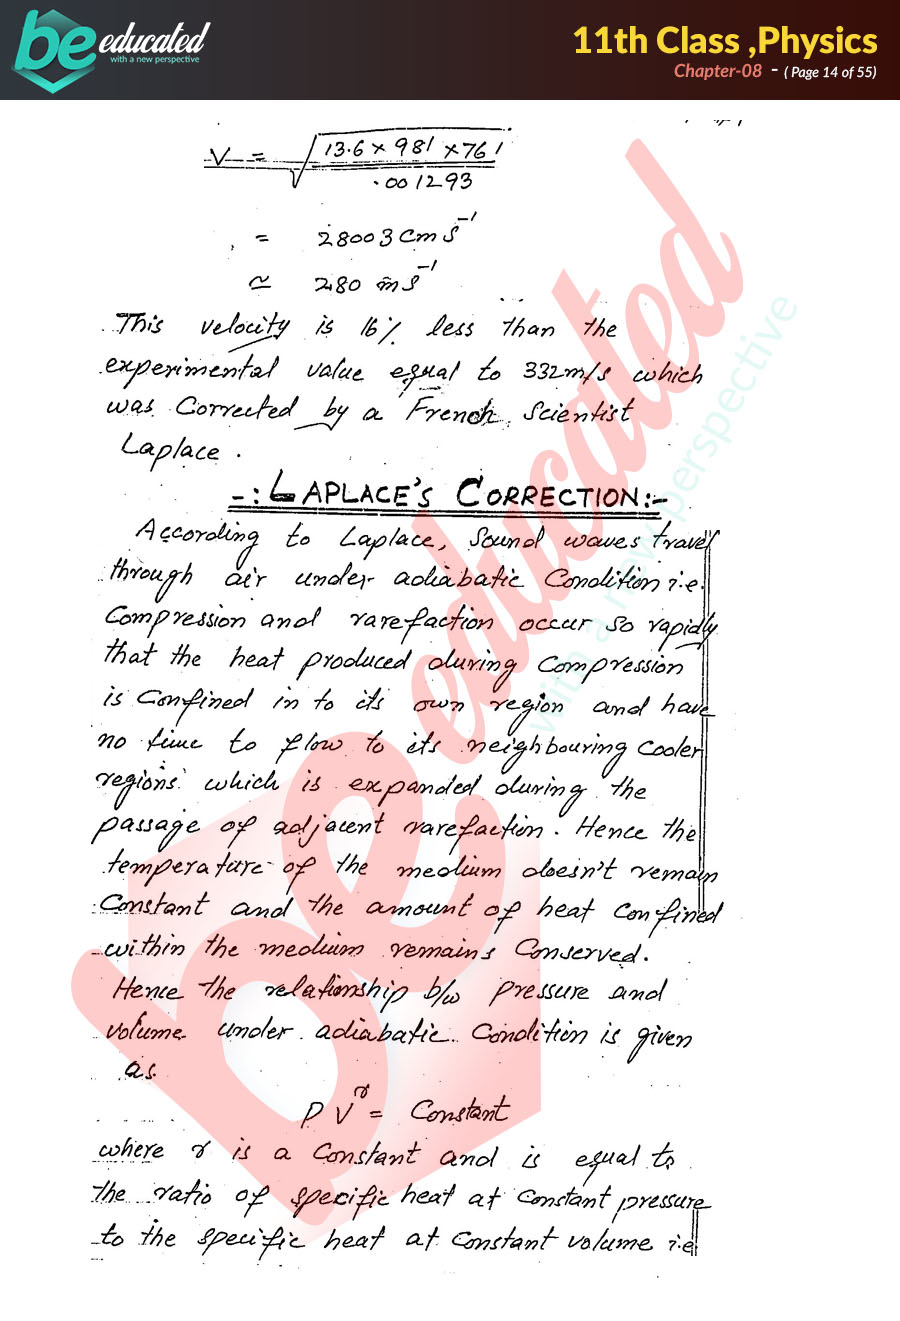 be educated
with a new perspective
11th Class ,Physics
Chapter-08 - ( Page 14 of 55)
V = √(13.6 x 981 x 761 / .001293)
= 28003 cm s⁻¹
≃ 280 m s⁻¹
This velocity is 16% less than the
experimental value equal to 332m/s which
was Corrected by a French Scientist
Laplace.
-: LAPLACE'S CORRECTION:-
According to Laplace, Sound waves travel
through air under adiabatic Condition i.e.
Compression and rarefaction occur so rapidly
that the heat produced during Compression
is Confined in to its own region and have
no time to flow to its neighbouring cooler
regions which is expanded during the
passage of adjacent rarefaction. Hence the
temperature of the medium doesn't remain
Constant and the amount of heat confined
within the medium remains Conserved.
Hence the relationship b/w pressure and
volume under adiabatic Condition is given
as
P V^γ = Constant
where γ is a Constant and is equal to
the ratio of specific heat at Constant pressure
to the specific heat at Constant volume i.e
be educated
with a new perspective